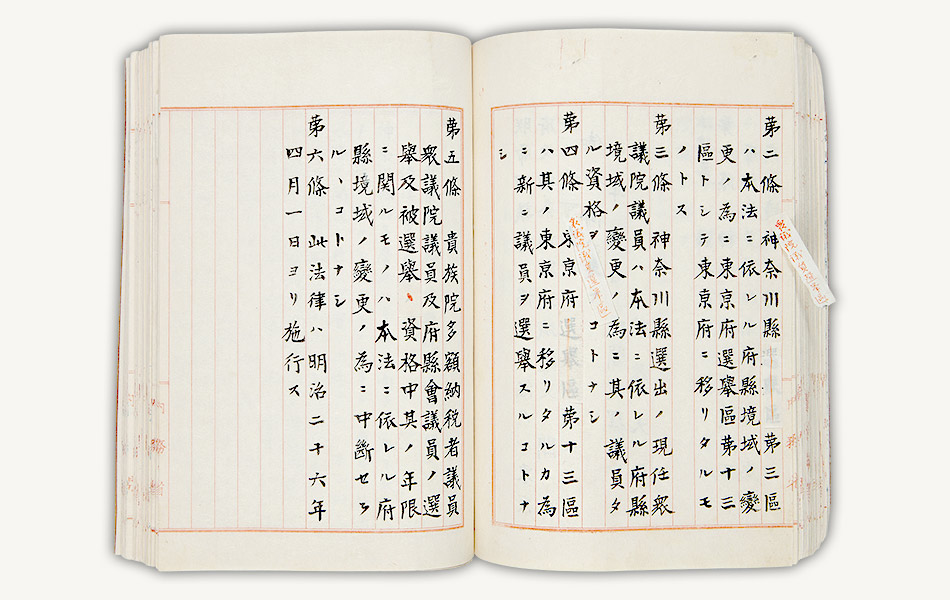 第二條 神奈川縣 第三區
ハ本法ニ依レル府縣境域ノ變
更ノ為ニ東京府選擧區第十三
區トシテ東京府ニ移リタルモ
ノトス
第三條 神奈川縣選出ノ現任衆
議院議員ハ本法ニ依レル府縣
境域ノ變更ノ為ニ其ノ議員タ
ル資格ヲ コトナシ
第四條 東京府選擧區第十三區
ハ其ノ東京府ニ移リタルカ為
ニ新ニ議員ヲ選擧スルコトナ
シ
第五條 貴族院多額納税者議員
衆議院議員及府縣會議員ノ選
擧及被選擧ノ資格中其ノ年限
ニ関ルモノハ本法ニ依レル府
縣境域ノ變更ノ為ニ中斷セラ
ルヽコトナシ
第六條 此法律ハ明治二十六年
四月一日ヨリ施行ス